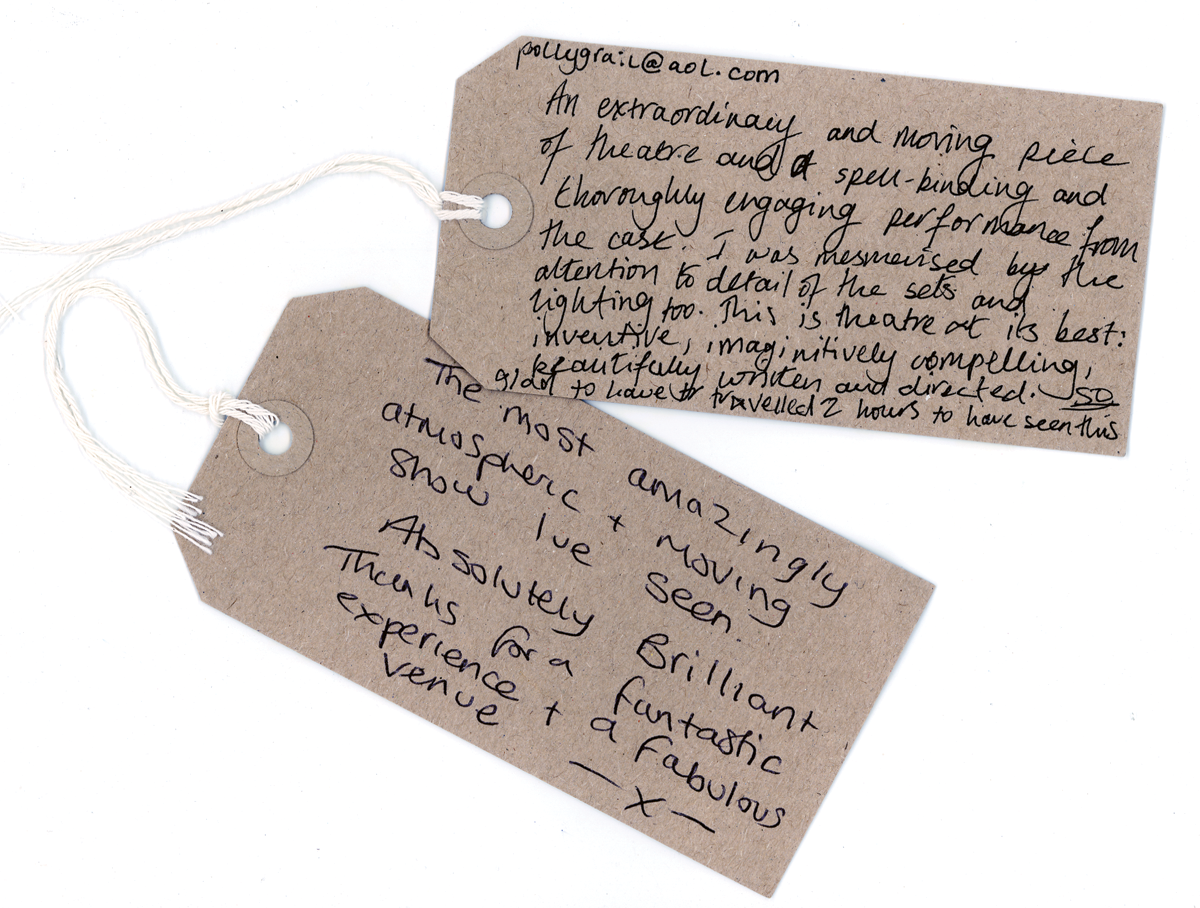 pollygrail@aol.com
An extraordinary and moving piece
of theatre and a spell-binding and
thoroughly engaging performance from
the cast. I was mesmerised by the
attention to detail of the sets and
lighting too. This is theatre at its best:
inventive, imaginitively compelling,
beautifully written and directed. SO
glad to have travelled 2 hours to have seen this
The most amazingly
atmospheric + moving
show Ive seen.
Absolutely Brilliant
Thanks for a fantastic
experience + a fabulous
venue
— x —